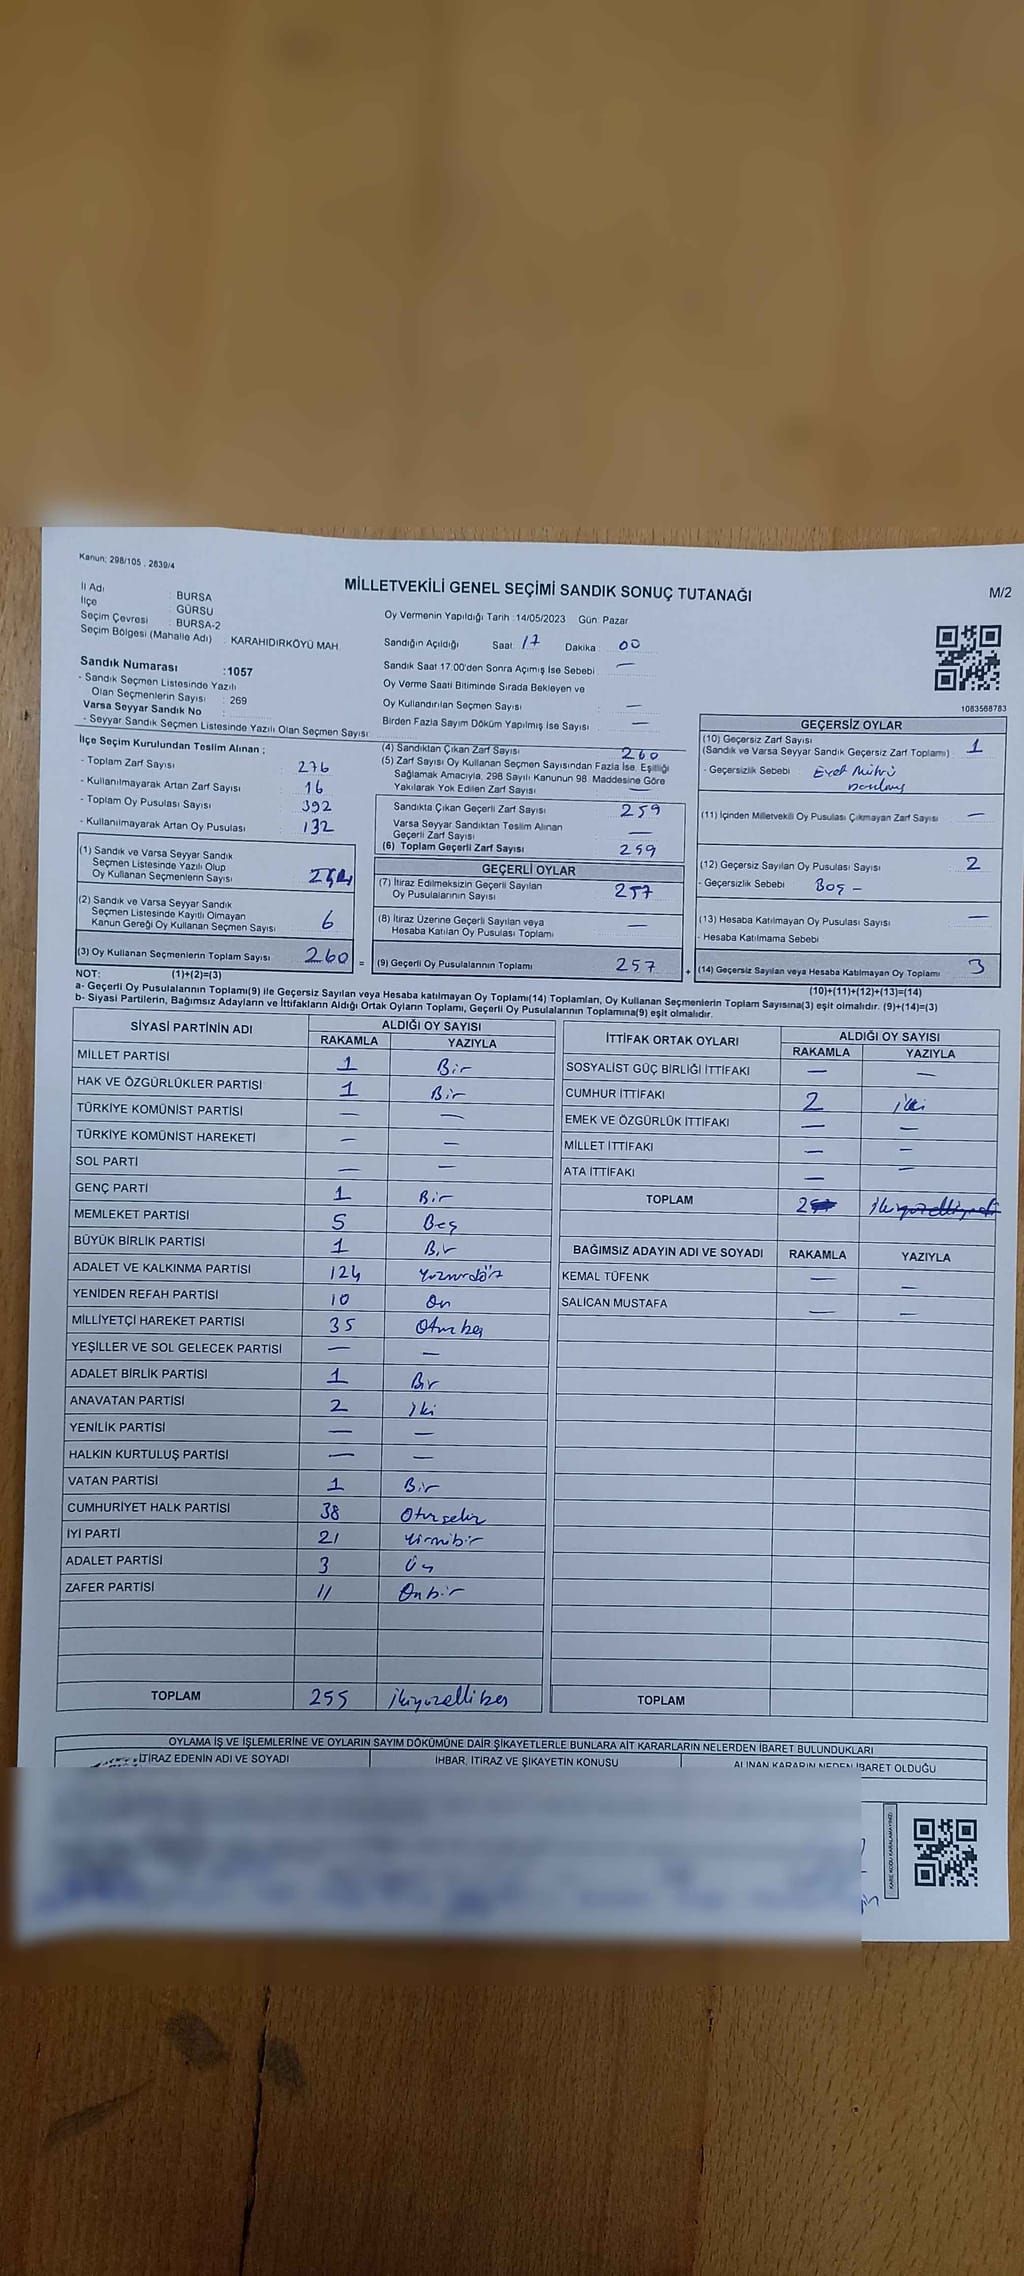 Kanun: 298/105 , 2839/4
MİLLETVEKİLİ GENEL SEÇİMİ SANDIK SONUÇ TUTANAĞI
M/2
İl Adı : BURSA
İlçe : GÜRSU
Seçim Çevresi : BURSA-2
Seçim Bölgesi (Mahalle Adı) : KARAHIDIRKÖYÜ MAH.
Sandık Numarası :1057
- Sandık Seçmen Listesinde Yazılı
Olan Seçmenlerin Sayısı : 269
Varsa Seyyar Sandık No :
- Seyyar Sandık Seçmen Listesinde Yazılı Olan Seçmen Sayısı:
Oy Vermenin Yapıldığı Tarih :14/05/2023 Gün: Pazar
Sandığın Açıldığı Saat: 17 Dakika: 00
Sandık Saat 17.00'den Sonra Açımış İse Sebebi : —
Oy Verme Saati Bitiminde Sırada Bekleyen ve
Oy Kullandırılan Seçmen Sayısı : —
Birden Fazla Sayım Döküm Yapılmış İse Sayısı : —
1083568783
İlçe Seçim Kurulundan Teslim Alınan ;
- Toplam Zarf Sayısı : 276
- Kullanılmayarak Artan Zarf Sayısı : 16
- Toplam Oy Pusulası Sayısı : 392
- Kullanılmayarak Artan Oy Pusulası : 132
(1) Sandık ve Varsa Seyyar Sandık
Seçmen Listesinde Yazılı Olup
Oy Kullanan Seçmenlerin Sayısı :
(2) Sandık ve Varsa Seyyar Sandık
Seçmen Listesinde Kayıtlı Olmayan
Kanun Gereği Oy Kullanan Seçmen Sayısı : 6
(3) Oy Kullanan Seçmenlerin Toplam Sayısı : 260 =
(4) Sandıktan Çıkan Zarf Sayısı : 260
(5) Zarf Sayısı Oy Kullanan Seçmen Sayısından Fazla İse, Eşitliği
Sağlamak Amacıyla, 298 Sayılı Kanunun 98. Maddesine Göre
Yakılarak Yok Edilen Zarf Sayısı : —
Sandıkta Çıkan Geçerli Zarf Sayısı : 259
Varsa Seyyar Sandıktan Teslim Alınan
Geçerli Zarf Sayısı : —
(6) Toplam Geçerli Zarf Sayısı : 259
GEÇERLİ OYLAR
(7) İtiraz Edilmeksizin Geçerli Sayılan
Oy Pusulalarının Sayısı : 257
(8) İtiraz Üzerine Geçerli Sayılan veya
Hesaba Katılan Oy Pusulası Toplamı : —
(9) Geçerli Oy Pusulalarının Toplamı : 257 +
GEÇERSİZ OYLAR
(10) Geçersiz Zarf Sayısı
(Sandık ve Varsa Seyyar Sandık Geçersiz Zarf Toplamı) : 1
- Geçersizlik Sebebi : Evet Mührü
(11) İçinden Milletvekili Oy Pusulası Çıkmayan Zarf Sayısı : —
(12) Geçersiz Sayılan Oy Pusulası Sayısı : 2
- Geçersizlik Sebebi : Boş -
(13) Hesaba Katılmayan Oy Pusulası Sayısı : —
- Hesaba Katılmama Sebebi
(14) Geçersiz Sayılan veya Hesaba Katılmayan Oy Toplamı : 3
NOT: (1)+(2)=(3)
(10)+(11)+(12)+(13)=(14)
a- Geçerli Oy Pusulalarının Toplamı(9) ile Geçersiz Sayılan veya Hesaba katılmayan Oy Toplamı(14) Toplamları, Oy Kullanan Seçmenlerin Toplam Sayısına(3) eşit olmalıdır. (9)+(14)=(3)
b- Siyasi Partilerin, Bağımsız Adayların ve İttifakların Aldığı Ortak Oyların Toplamı, Geçerli Oy Pusulalarının Toplamına(9) eşit olmalıdır.
SİYASİ PARTİNİN ADI ALDIĞI OY SAYISI
RAKAMLA YAZIYLA
MİLLET PARTİSİ 1 Bir
HAK VE ÖZGÜRLÜKLER PARTİSİ 1 Bir
TÜRKİYE KOMÜNİST PARTİSİ — —
TÜRKİYE KOMÜNİST HAREKETİ — —
SOL PARTİ — —
GENÇ PARTİ 1 Bir
MEMLEKET PARTİSİ 5 Beş
BÜYÜK BİRLİK PARTİSİ 1 Bir
ADALET VE KALKINMA PARTİSİ 124
YENİDEN REFAH PARTİSİ 10 On
MİLLİYETÇİ HAREKET PARTİSİ 35 Otuzbeş
YEŞİLLER VE SOL GELECEK PARTİSİ — —
ADALET BİRLİK PARTİSİ 1 Bir
ANAVATAN PARTİSİ 2 iki
YENİLİK PARTİSİ — —
HALKIN KURTULUŞ PARTİSİ — —
VATAN PARTİSİ 1 Bir
CUMHURİYET HALK PARTİSİ 38 Otuzsekiz
İYİ PARTİ 21 Yirmibir
ADALET PARTİSİ 3 Üç
ZAFER PARTİSİ 11 Onbir
TOPLAM 255 ikiyüzellibeş
İTTİFAK ORTAK OYLARI ALDIĞI OY SAYISI
RAKAMLA YAZIYLA
SOSYALİST GÜÇ BİRLİĞİ İTTİFAKI — —
CUMHUR İTTİFAKI 2 iki
EMEK VE ÖZGÜRLÜK İTTİFAKI — —
MİLLET İTTİFAKI — —
ATA İTTİFAKI — —
TOPLAM 2
BAĞIMSIZ ADAYIN ADI VE SOYADI RAKAMLA YAZIYLA
KEMAL TÜFENK — —
SALİCAN MUSTAFA — —
TOPLAM
OYLAMA İŞ VE İŞLEMLERİNE VE OYLARIN SAYIM DÖKÜMÜNE DAİR ŞİKAYETLERLE BUNLARA AİT KARARLARIN NELERDEN İBARET BULUNDUKLARI
İTİRAZ EDENİN ADI VE SOYADI İHBAR, İTİRAZ VE ŞİKAYETİN KONUSU ALINAN KARARIN NEDEN İBARET OLDUĞU
KARE KODU KARALAMAYINIZ!